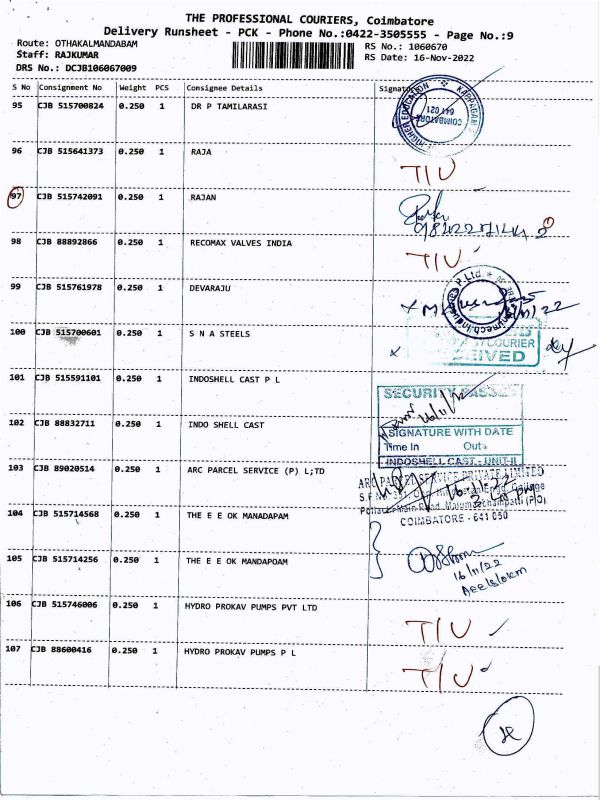 THE PROFESSIONAL COURIERS, Coimbatore
Delivery Runsheet - PCK - Phone No.:0422-3505555 - Page No.:9
Route: OTHAKALMANDABAM
RS No.: 1060670
Staff: RAJKUMAR
RS Date: 16-Nov-2022
DRS No.: DCJB106067009
S No Consignment No Weight PCS Consignee Details Signature
95 CJB 515700824 0.250 1 DR P TAMILARASI
HIGHER EDUCATION KARPAGAM COIMBATORE 641 021
96 CJB 515641373 0.250 1 RAJA
T/U
97 CJB 515742091 0.250 1 RAJAN
98 CJB 88892866 0.250 1 RECOMAX VALVES INDIA
T/U
99 CJB 515761978 0.250 1 DEVARAJU
P.Ltd.
100 CJB 515700601 0.250 1 S N A STEELS
COURIER
RECEIVED
101 CJB 515591101 0.250 1 INDOSHELL CAST P L
SECURITY PASSED
16/11/22
102 CJB 88832711 0.250 1 INDO SHELL CAST
SIGNATURE WITH DATE
Time In Out
INDOSHELL CAST - UNIT-II
103 CJB 89020514 0.250 1 ARC PARCEL SERVICE (P) L;TD
ARC PARCEL SERVICE PRIVATE LIMITED
College
Pollachi Main Road, Malumachampatti (P.O)
COIMBATORE - 641 050
104 CJB 515714568 0.250 1 THE E E OK MANADAPAM
105 CJB 515714256 0.250 1 THE E E OK MANDAPOAM
16/11/22
106 CJB 515746006 0.250 1 HYDRO PROKAV PUMPS PVT LTD
T/U
107 CJB 88600416 0.250 1 HYDRO PROKAV PUMPS P L
T/U